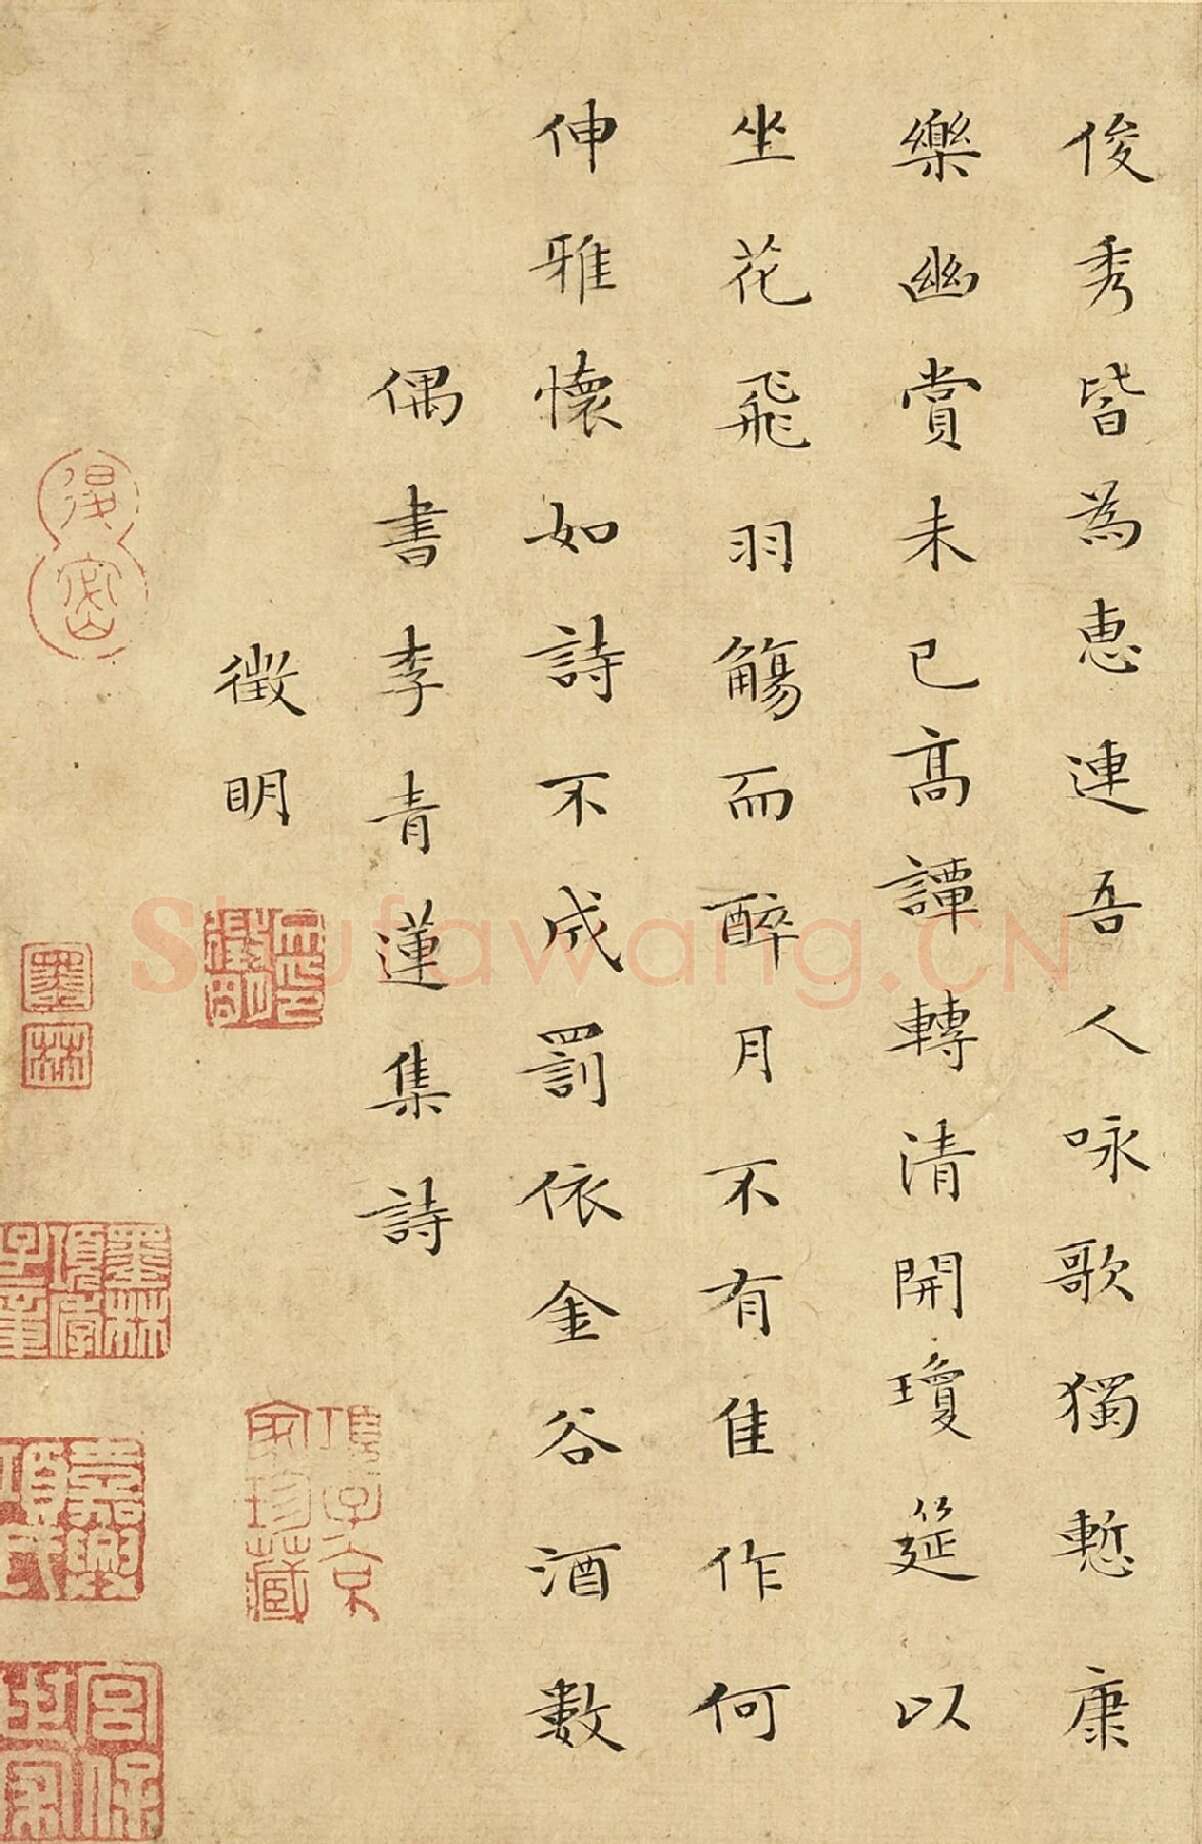 俊秀皆為惠連吾人咏歌獨慙康
樂幽賞未已高譚轉清開瓊筵以
坐花飛羽觴而醉月不有佳作何
伸雅懷如詩不成罰依金谷酒數
偶書李青蓮集詩
徵明
墨林
項子京家珍藏
Shufawang.CN